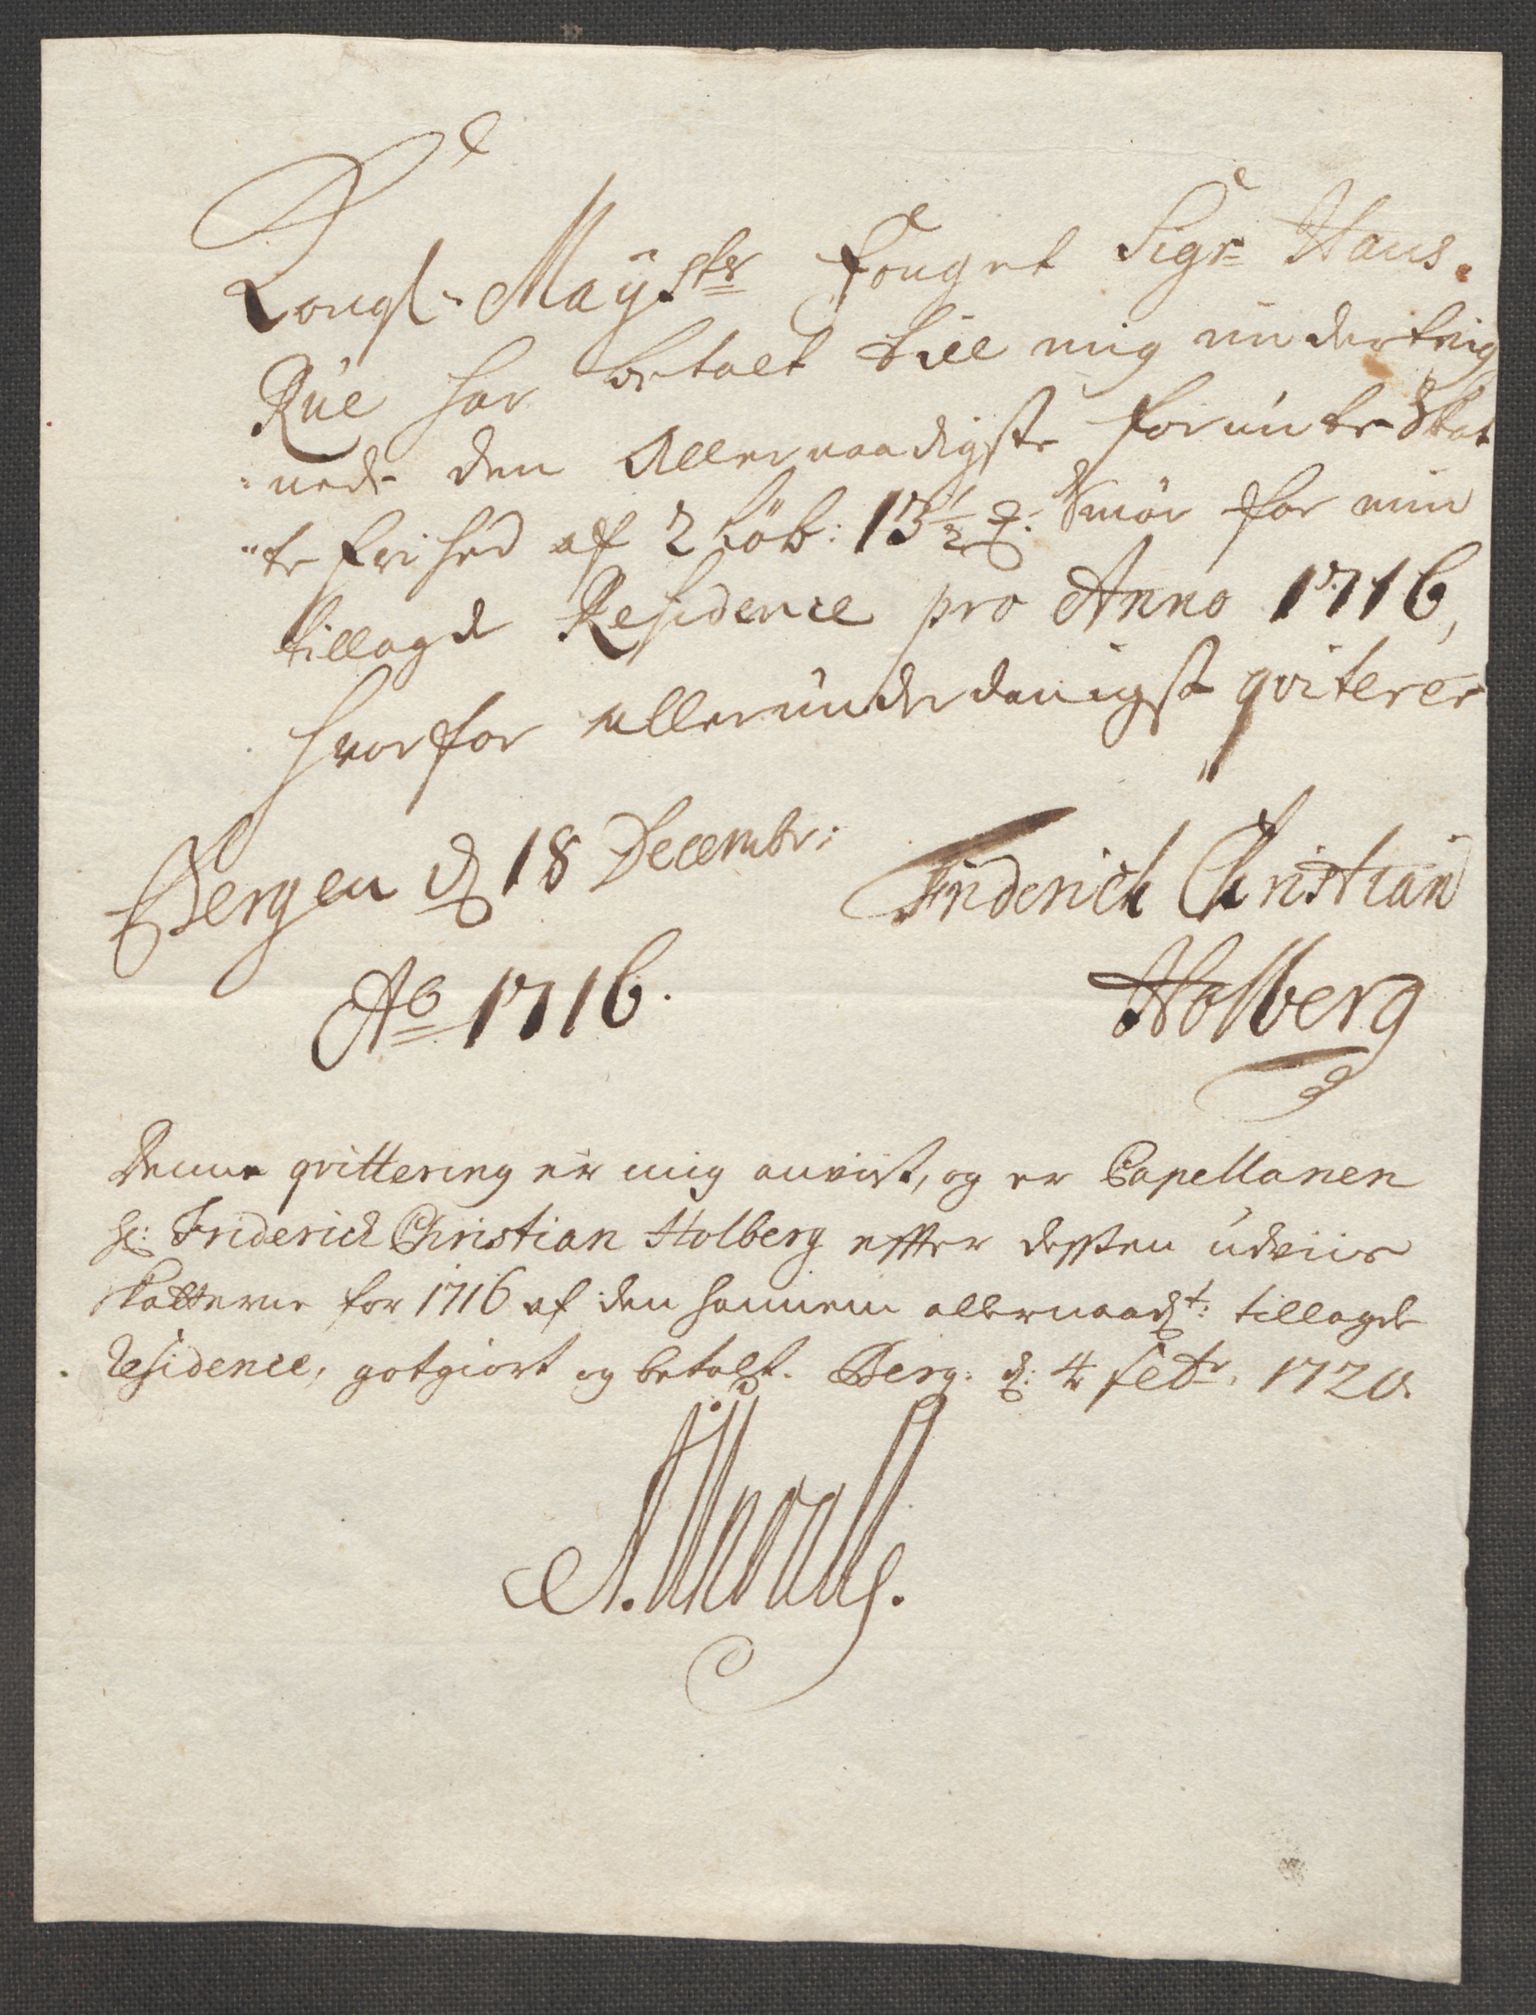 Kongl: Mayſts Fouget Sigr Hans
Rúe har betalt till mig underteig
nede den Allernaadigste forunte Skat
te frihed af 2 Löb: 13½ ℔: Smör for min
tillagde Residence pro Anno 1716,
hvorfor allerunderdanigst qviterer
Bergen d 18 Decembr:
Friderich Christian
Ao 1716.
Holberg
Denne qvittering er mig anvist, og er Capellanen
Hr: Friderich Christian Holberg effter dessen udviis
skatterne for 1716 af den hannem allernaadt: tillagde
residence, gotgiort og betalt. Berg: d: 4 febr. 1720.